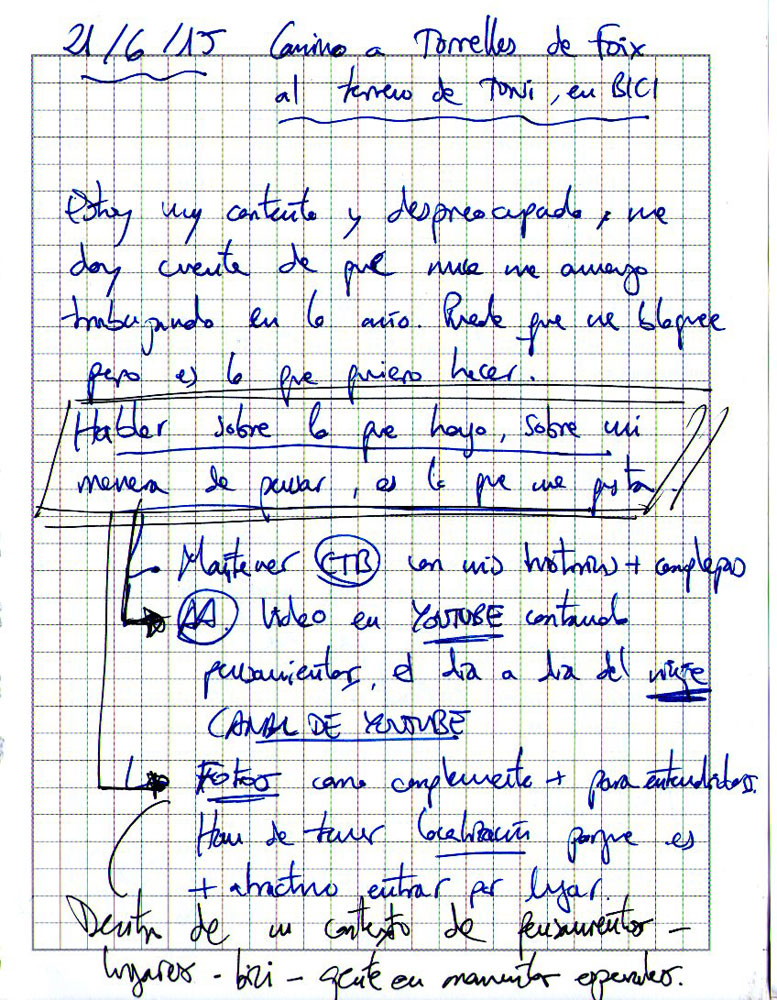 21/6/15 Camino a Torrelles de Foix
al terreno de Toni, en BICI
Estoy muy contento y despreocupado, me
doy cuenta de que nunca me
trabajando en lo mío. Puede que me bloquee
pero es lo que quiero hacer.
Hablar sobre lo que hago, sobre mi
manera de pensar, es lo que me gusta.
Mantener CTB con mis historias + complejas
AA. Video en YOUTUBE contando
pensamientos, el dia a dia del viaje
CANAL DE YOUTUBE
Fotos como complemento + para entendidos.
Han de tener localización porque es
+ atractivo entrar por lugar.
Dentro de un contexto de pensamientos -
lugares - bici - gente en momentos especiales.